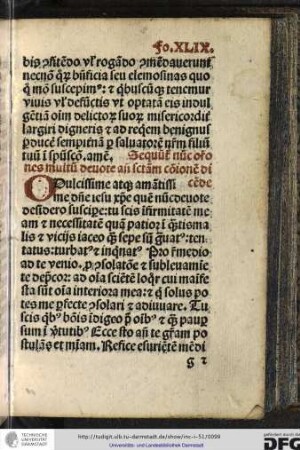 fo.XLIX.
bis ꝯfitēdo vl̓ rogādo ⁊ mēdauerunt
necnō qͦꝝ bn̄ficia seu elemosinas quo
qͣ mō suscepimꝰ: ⁊ qͥbuscūqꝫ tenemur
viuis vl̓ defūctis vt optatā eis indul
gētiā oīm delictoꝝ suoꝝ misericordit̓
largiri digneris ⁊ ad reqͥem benignus
ꝑducē sempit̓nā ꝑ saluatorē nr̄m filiū
tuū ī spūscō. amē.
Sequūt̉ nūc or̄o
nes multū deuote añ sctām cōionē di
cēde
O Dulcissime atqꝫ amātissi
me dn̄e iesu xp̄e quē nūc deuote
desidero suscipeꝛ: tu scis īfirmitatē me
am ⁊ necessitatē quā patior ī qͣntisma
lis ⁊ vicijs iaceo qͣ sepe sū gͣuatꝰ: ten
tatus: turbatꝰ ⁊ inqͥnatꝰ Pro r̄medio
ad te venio. ꝓ ꝯsolatōe ⁊ subleuamīe
te dep̄cor: ad oīa sciētē loqͦr cui maīfe
sta sūt oīa interiora mea: ⁊ qͥ solus po
tes me ꝑfecte ꝯsolari ⁊ adiuuare. Tu
scis qͥbꝰ bōis īdigeo p̄ oībꝰ ⁊ qͣ̄ paupꝑ
sum ī v̓tutibꝰ Ecce sto añ te gr̄am po
stulās et mīam. Refice esuriētē mēdi
g ı
TECHNISCHE
UNIVERSITÄT
DARMSTADT
http://tudigit.ulb.tu-darmstadt.de/show/inc-i-51/0098
Universitäts- und Landesbibliothek Darmstadt